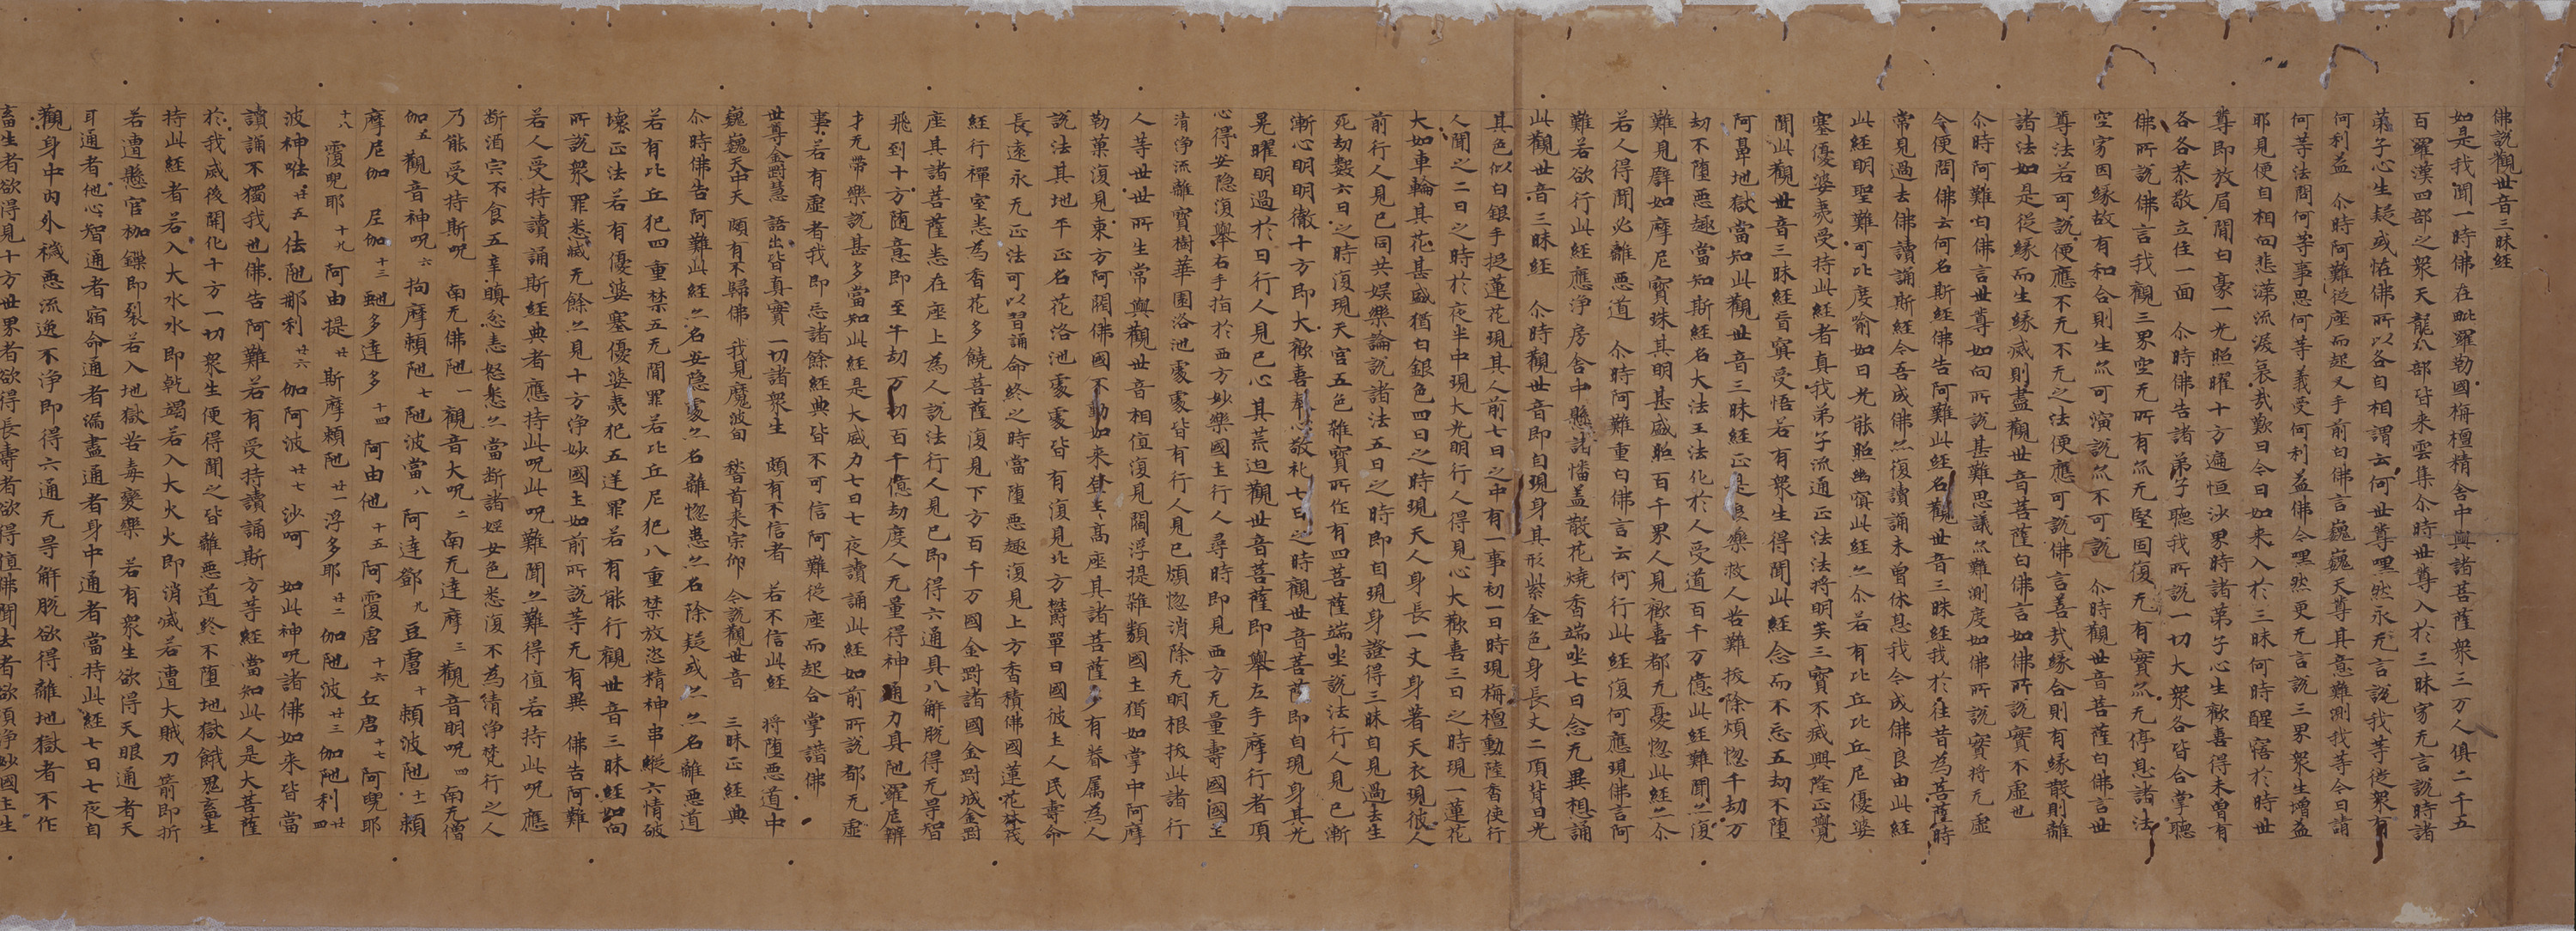 佛說觀世音三昧経
如是我聞一時佛在毗羅勒國栴檀精舍中與諸菩薩衆三万人俱二千五
百羅漢四部之衆天龍八部皆来雲集尒時世尊入於三昧寂无言說時諸
弟子心生疑或恠佛所以各自相謂云何世尊嘿然永无言說我等徒衆有
何利益 尒時阿難従座而起叉手前白佛言巍巍天尊其意難測我等今日請
何等法問何等事思何等義受何利益佛今嘿然更无言說三界衆生增益
耶見便自相向悲涕流淚哀哉歎曰今日如来入於三昧何時醒寤於時世
尊即放眉間白豪一光照曜十方遍恒沙界時諸弟子心生歡喜得未曾有
各各恭敬立住一面 尒時佛告諸弟子聽我所說一切大衆各皆合掌聽
佛所說佛言我觀三界空无所有亦无堅固復无有實亦无停息諸法
空寂因緣故有和合則生亦可演說亦不可說 尒時觀世音菩薩白佛言世
尊法若可說便應不无不无之法便應可說佛言善哉緣合則有緣散則離
諸法如是従緣而生緣滅則盡觀世音菩薩白佛言如佛所說實不虛也
尒時阿難白佛言世尊如向所說甚難思議亦難測度如佛所說實將无虛
今便問佛云何名斯経佛告阿難此経名觀世音三昧経我於往昔為菩薩時
常見過去佛讀誦斯経今吾成佛亦復讀誦未曾休息我今成佛良由此経
此経明聖難可比度喻如日光能照幽冥此経亦尒若有比丘比丘尼優婆
塞優婆夷受持此経者真我弟子流通正法法將明矣三寶不滅興隆正覺
聞此觀世音三昧経旨冥受悟若有衆生得聞此経念而不忘五劫不墮
阿鼻地獄當知此觀世音三昧経正是良樂救人苦難拔除煩惱千劫万
劫不墮惡趣當知斯経名大法王法化於人受道百千万億此経難聞亦復
難見譬如摩尼寶珠其明甚盛照百千界人見歡喜都无憂惱此経亦尒
若人得聞必離惡道 尒時阿難重白佛言云何行此経復何應現佛言阿
難若欲行此経應淨房舍中懸諸幡盖散花燒香端坐七日念无異想誦
此觀世音三昧経 尒時觀世音即自現身其形紫金色身長丈二項背日光
其色似白銀手捉蓮花現其人前七日之中有一事初一日時現栴檀動陸香使行
人聞之二日之時於夜半中現大光明行人得見心大歡喜三日之時現一蓮花
大如車輪其花甚盛猶白銀色四日之時現天人身長一丈身著天衣現彼人
前行人見已同共娛樂論說諸法五日之時即自現身證得三昧自見過去生
死劫數六日之時復現天宮五色雜寶所作有四菩薩端坐說法行人見已漸
漸心明明徹十方即大歡喜恭敬礼七日之時觀世音菩薩即自現身其光
晃曜明過於日行人見已心其荒迫觀世音菩薩即舉左手摩行者頂
心得安隐復舉右手指於西方妙樂國土行人尋時即見西方无量壽國國土
清淨流離寶樹華園浴池處處皆有行人見已煩惱消除无明根拔此諸行
人等世世所生常與觀世音相值復見閻浮提雜類國土猶如掌中阿摩
勒菓復見東方阿閦佛國不動如来登上高座其諸菩薩多有眷属為人
說法其地平正名花浴池處處皆有復見北方欝單曰國彼土人民壽命
長遠永无正法可以習誦命終之時當墮惡趣復見上方香積佛國蓮花林茂
経行禪室悉為香花多饒菩薩復見下方百千万國金剛諸國金剛城金剛
座其諸菩薩悉在座上為人說法行人見已即得六通具八解脫得无㝵智
飛到十方随意即至千劫万劫百千億劫度人无量得神通力具陁羅尼辯
才无㝵樂說甚多當知此経是大威力七日七夜讀誦此経如前所說都无虛
事若有虛者我即忘諸餘経典皆不可信阿難従座而起合掌讃佛
世尊金剛慧 語出皆真實 一切諸衆生 頗有不信者 若不信此経 将墮惡道中
巍巍天中天 頗有不歸佛 我見魔波旬 嵆首来宗仰 今說觀世音 三昧正経典
尒時佛告阿難此経亦名安隐處亦名離惱患亦名除疑或亦名離惡道
若有比丘犯四重禁五无間罪若比丘尼犯八重禁放恣精神串縱六情破
壞正法若有優婆塞優婆夷犯五逆罪若有能行觀世音三昧経如向
所說衆罪悉滅无餘亦見十方淨妙國土如前所說等无有異 佛告阿難
若人受持讀誦斯経典者應持此呪此呪難聞亦難得值若持此呪應
断酒宍不食五辛瞋忿恚怒悉亦當断諸婬女色悉復不為清淨梵行之人
乃能受持斯呪 南无佛陁一觀音大呪二南无達摩三觀音明呪四南无僧
伽五觀音神呪六拘摩頼陁七陁波當八阿達鄧九豆盧十頼波陁十一頼
摩尼伽 尼伽十三馳多達多十四阿由他十五阿霞唐十六丘唐十七阿睆耶
十八霞睆耶十九阿由提廿斯摩頼陁廿一浮多耶廿二伽陁波廿三伽陁利廿四
波神咗廿五佉陁那利廿六伽阿波廿七沙呵 如此神呪諸佛如来皆當
讀誦不獨我也佛告阿難若有受持讀誦斯方等経當知此人是大菩薩
於我滅後開化十方一切衆生便得聞之皆離惡道終不墮地獄餓鬼畜生
持此経者若入大水水即乾竭若入大火火即消滅若遭大賊刀箭即折
若遭懸官枷鏁即裂若入地獄苦毒變樂 若有衆生欲得天眼通者天
耳通者他心智通者宿命通者漏盡通者身中通者當持此経七日七夜自
觀身中内外穢惡流逸不淨即得六通无㝵解脫欲得離地獄者不作
畜生者欲得見十方世界者欲得長壽者欲得值佛聞法者欲須淨妙國土生